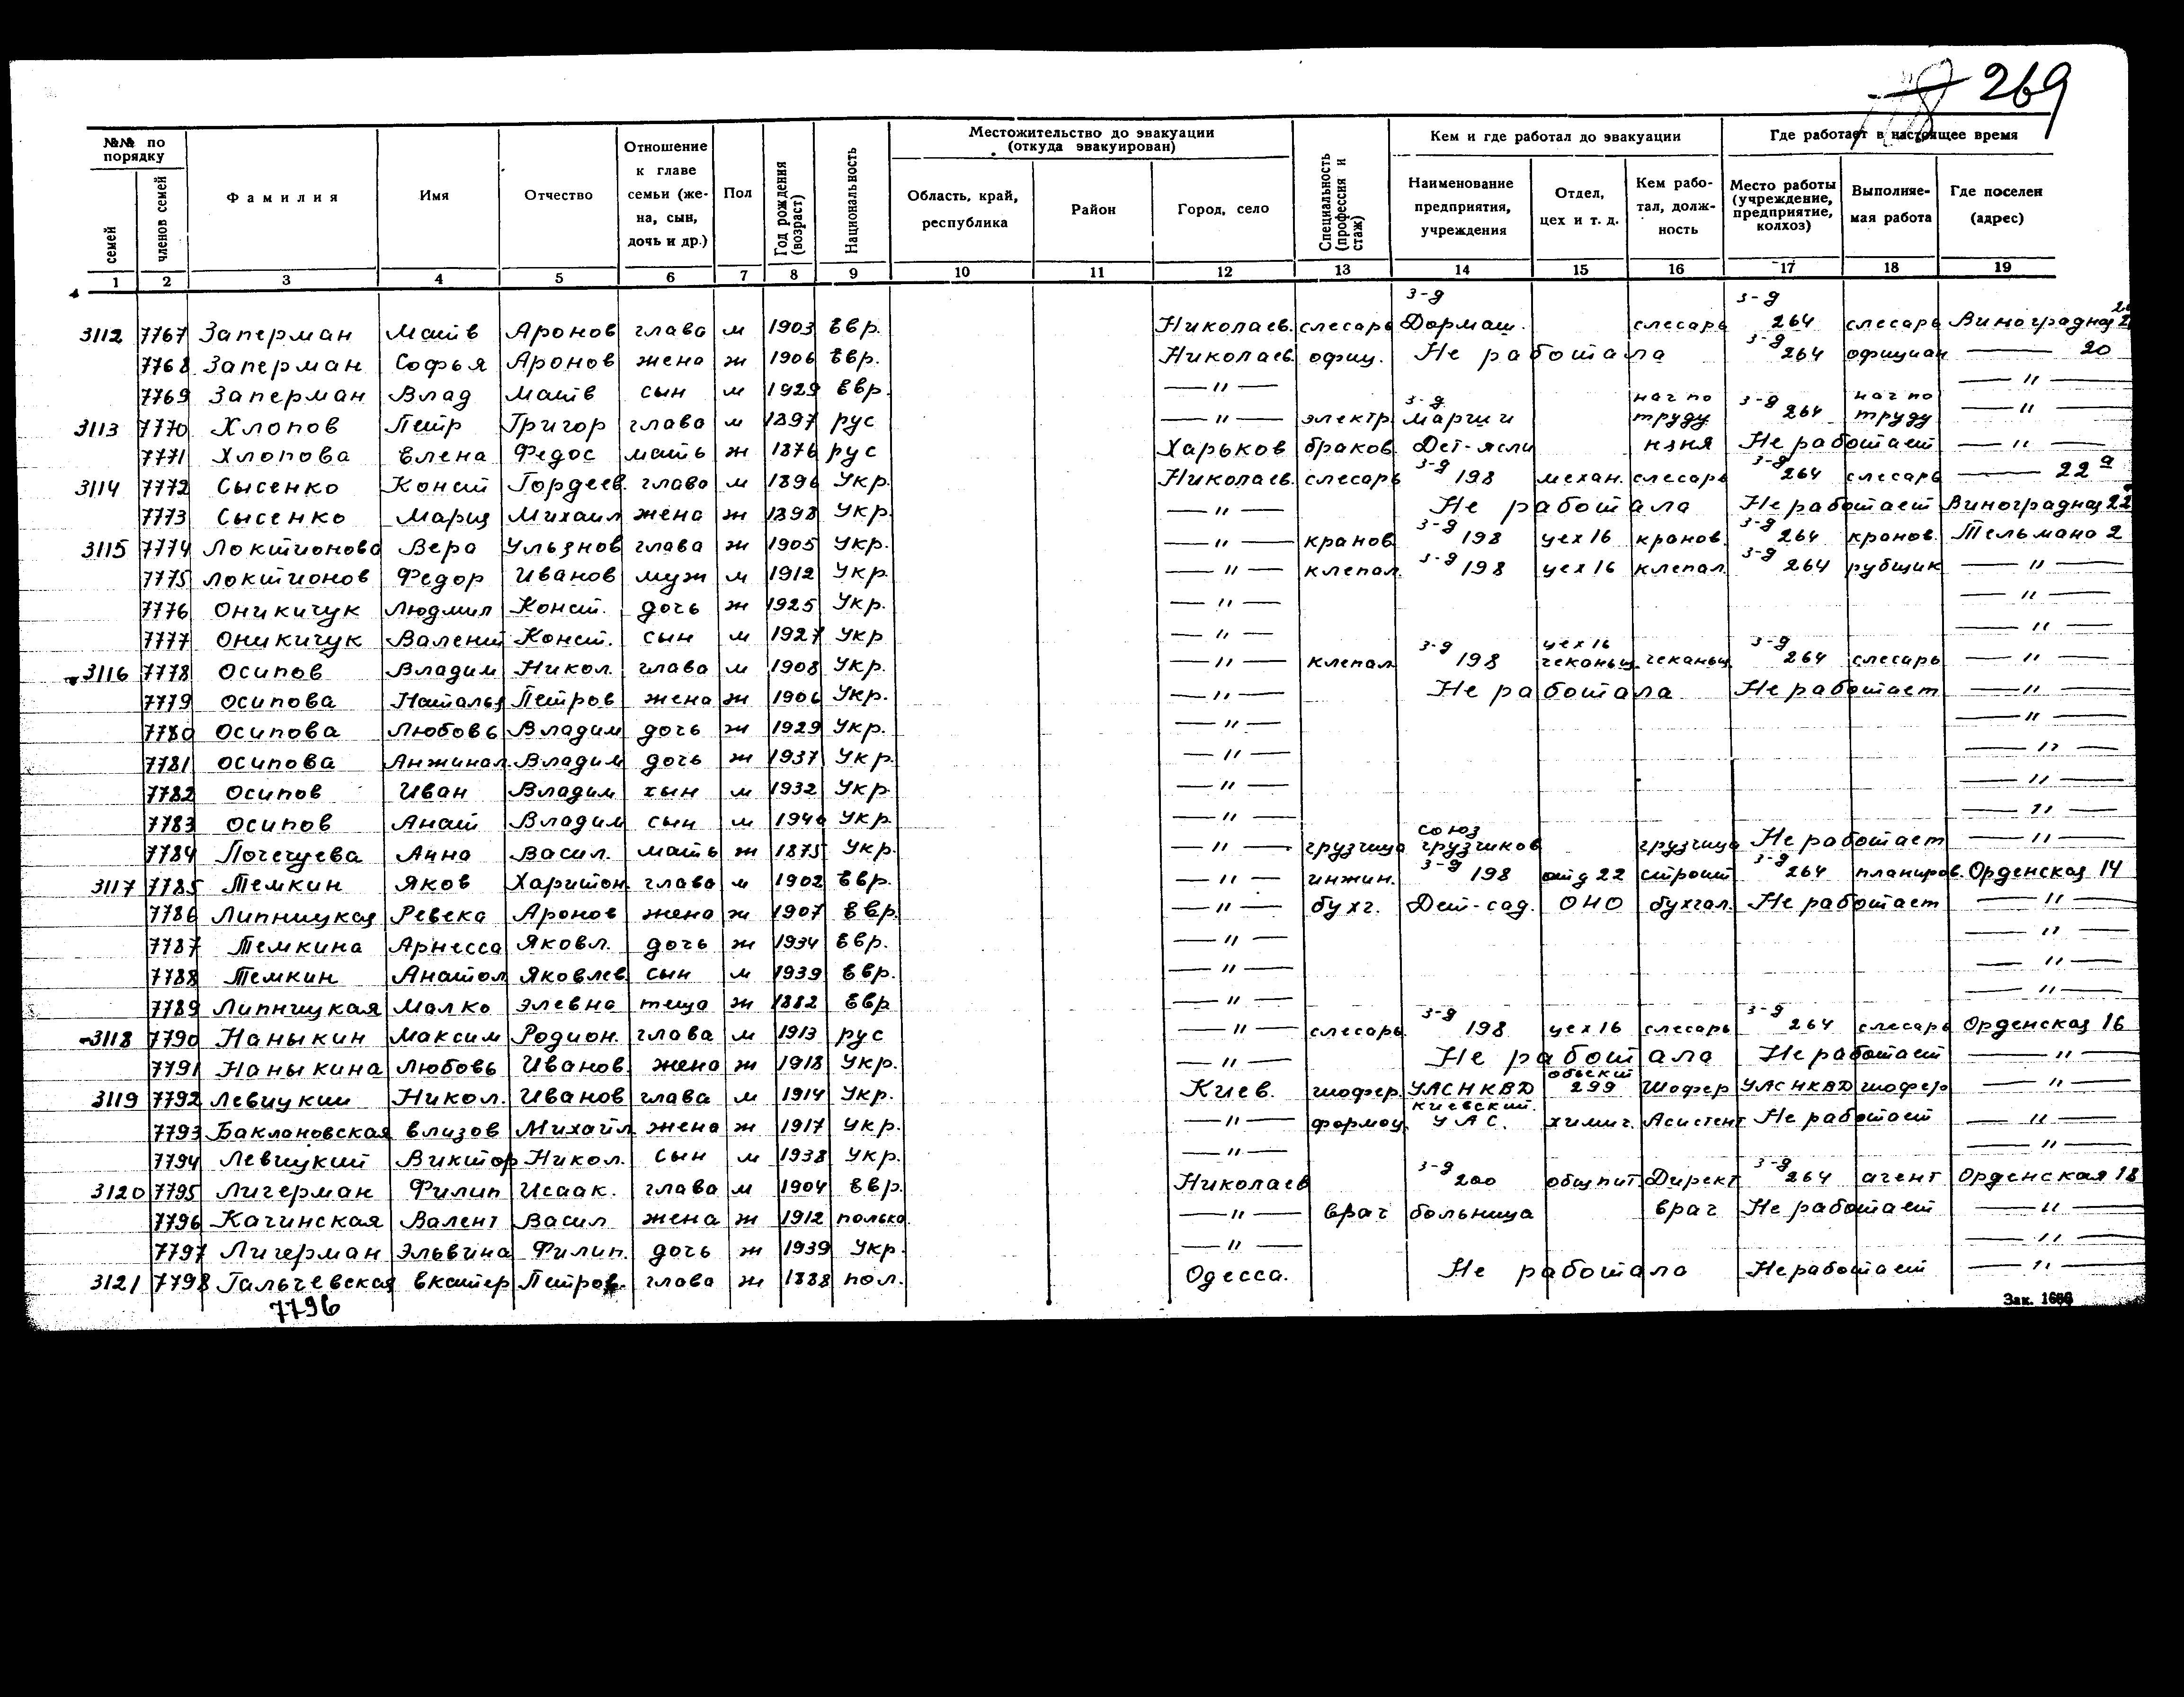 269
№№ по порядку
семей
членов семей
Фамилия
Имя
Отчество
Отношение к главе семьи (жена, сын, дочь и др.)
Пол
Год рождения (возраст)
Национальность
Местожительство до эвакуации (откуда эвакуирован)
Область, край, республика
Район
Город, село
Специальность (профессия и стаж)
Кем и где работал до эвакуации
Наименование предприятия, учреждения
Отдел, цех и т. д.
Кем работал, должность
Где работает в настоящее время
Место работы (учреждение, предприятие, колхоз)
Выполняемая работа
Где поселен (адрес)
1 2 3 4 5 6 7 8 9 10 11 12 13 14 15 16 17 18 19
3112 7767 Заперман Матв Аронов глава м 1903 Евр. Николаев. слесарь з-д Дормаш. слесарь з-д 264 слесарь Виноградная
7768 Заперман Софья Аронов жена ж 1906 Евр. Николаев. офиц. Не работала з-д 264 официан — 20
7769 Заперман Влад Матв сын м 1929 Евр. — " — — " —
3113 7770 Хлопов Петр Григор глава м 1897 рус — " — электр з-д Марти и нач по труду з-д 264 нач по труду — " —
7771 Хлопова Елена Федос мать ж 1876 рус Харьков браков. Дет-ясли няня Не работает — " —
3114 7772 Сысенко Конст Гордеев. глава м 1896 Укр. Николаев. слесарь з-д 198 механ. слесарь з-д 264 слесарь — 22 а
7773 Сысенко Мария Михаил жена ж 1898 Укр. — " — Не работала Не работает Виноградная 22
3115 7774 Локтионова Вера Ульянов глава ж 1905 Укр. — " — кранов. з-д 198 цех 16 кранов. з-д 264 кранов. Тельмана 2
7775 Локтионов Федор Иванов муж м 1912 Укр. — " — клепал. з-д 198 цех 16 клепал. з-д 264 рубщик — " —
7776 Оникичук Людмил Конст. дочь ж 1925 Укр. — " — — " —
7777 Оникичук Валент Конст. сын м 1927 Укр — " — — " —
3116 7778 Осипов Владим Никол. глава м 1908 Укр. — " — клепал з-д 198 цех 16 чеканщ. чеканщ з-д 264 слесарь — " —
7779 Осипова Наталья Петров жена ж 1906 Укр. — " — Не работала Не работает — " —
7780 Осипова Любовь Владим дочь ж 1929 Укр. — " — — " —
7781 Осипова Анжинал. Владим дочь ж 1937 Укр. — " — — " —
7782 Осипов Иван Владим сын м 1932 Укр. — " — — " —
7783 Осипов Анат Владим сын м 1940 Укр — " — — " —
7784 Почечуева Анна Васил. мать ж 1875 Укр. — " — грузчица союз грузчиков грузчица Не работает — " —
3117 7785 Темкин Яков Харитон. глава м 1902 Евр. — " — инжин. з-д 198 отд 22 строит з-д 264 планиров. Орденская 14
7786 Липницкая Ревека Аронов жена ж 1907 Евр. — " — бухг. Дет-сад. ОНО бухгал. Не работает — " —
7787 Темкина Арнесса Яковл. дочь ж 1934 Евр. — " — — " —
7788 Темкин Анатол Яковлев сын м 1939 Евр. — " — — " —
7789 Липницкая Малко Элевна теща ж 1882 Евр — " — — " —
3118 7790 Наныкин Максим Родион. глава м 1913 рус — " — слесарь. з-д 198 цех 16 слесарь з-д 264 слесарь Орденская 16
7791 Наныкина Любовь Иванов. жена ж 1918 Укр. — " — Не работала Не работает — " —
3119 7792 Левицкий Никол. Иванов глава м 1914 Укр. Киев. шофер. УАСНКВД 299 Шофер УАСНКВД шофер — " —
7793 Баклановская Елизов Михайл. жена ж 1917 Укр. — " — киевский У А С. химич. Асистент Не работает — " —
7794 Левицкий Виктор Никол. сын м 1938 Укр. — " — — " —
3120 7795 Лигерман Филип Исаак. глава м 1904 Евр. Николаев з-д 200 общпит. Директ з-д 264 агент Орденская 18
7796 Качинская Валент Васил жена ж 1912 полька. — " — врач больница врач Не работает — " —
7797 Лигерман Эльвина Филип. дочь ж 1939 Укр. — " — — " —
3121 7798 Гальчевская Екатер Петров. глава ж 1888 пол. Одесса. Не работала Не работает — " —
7796